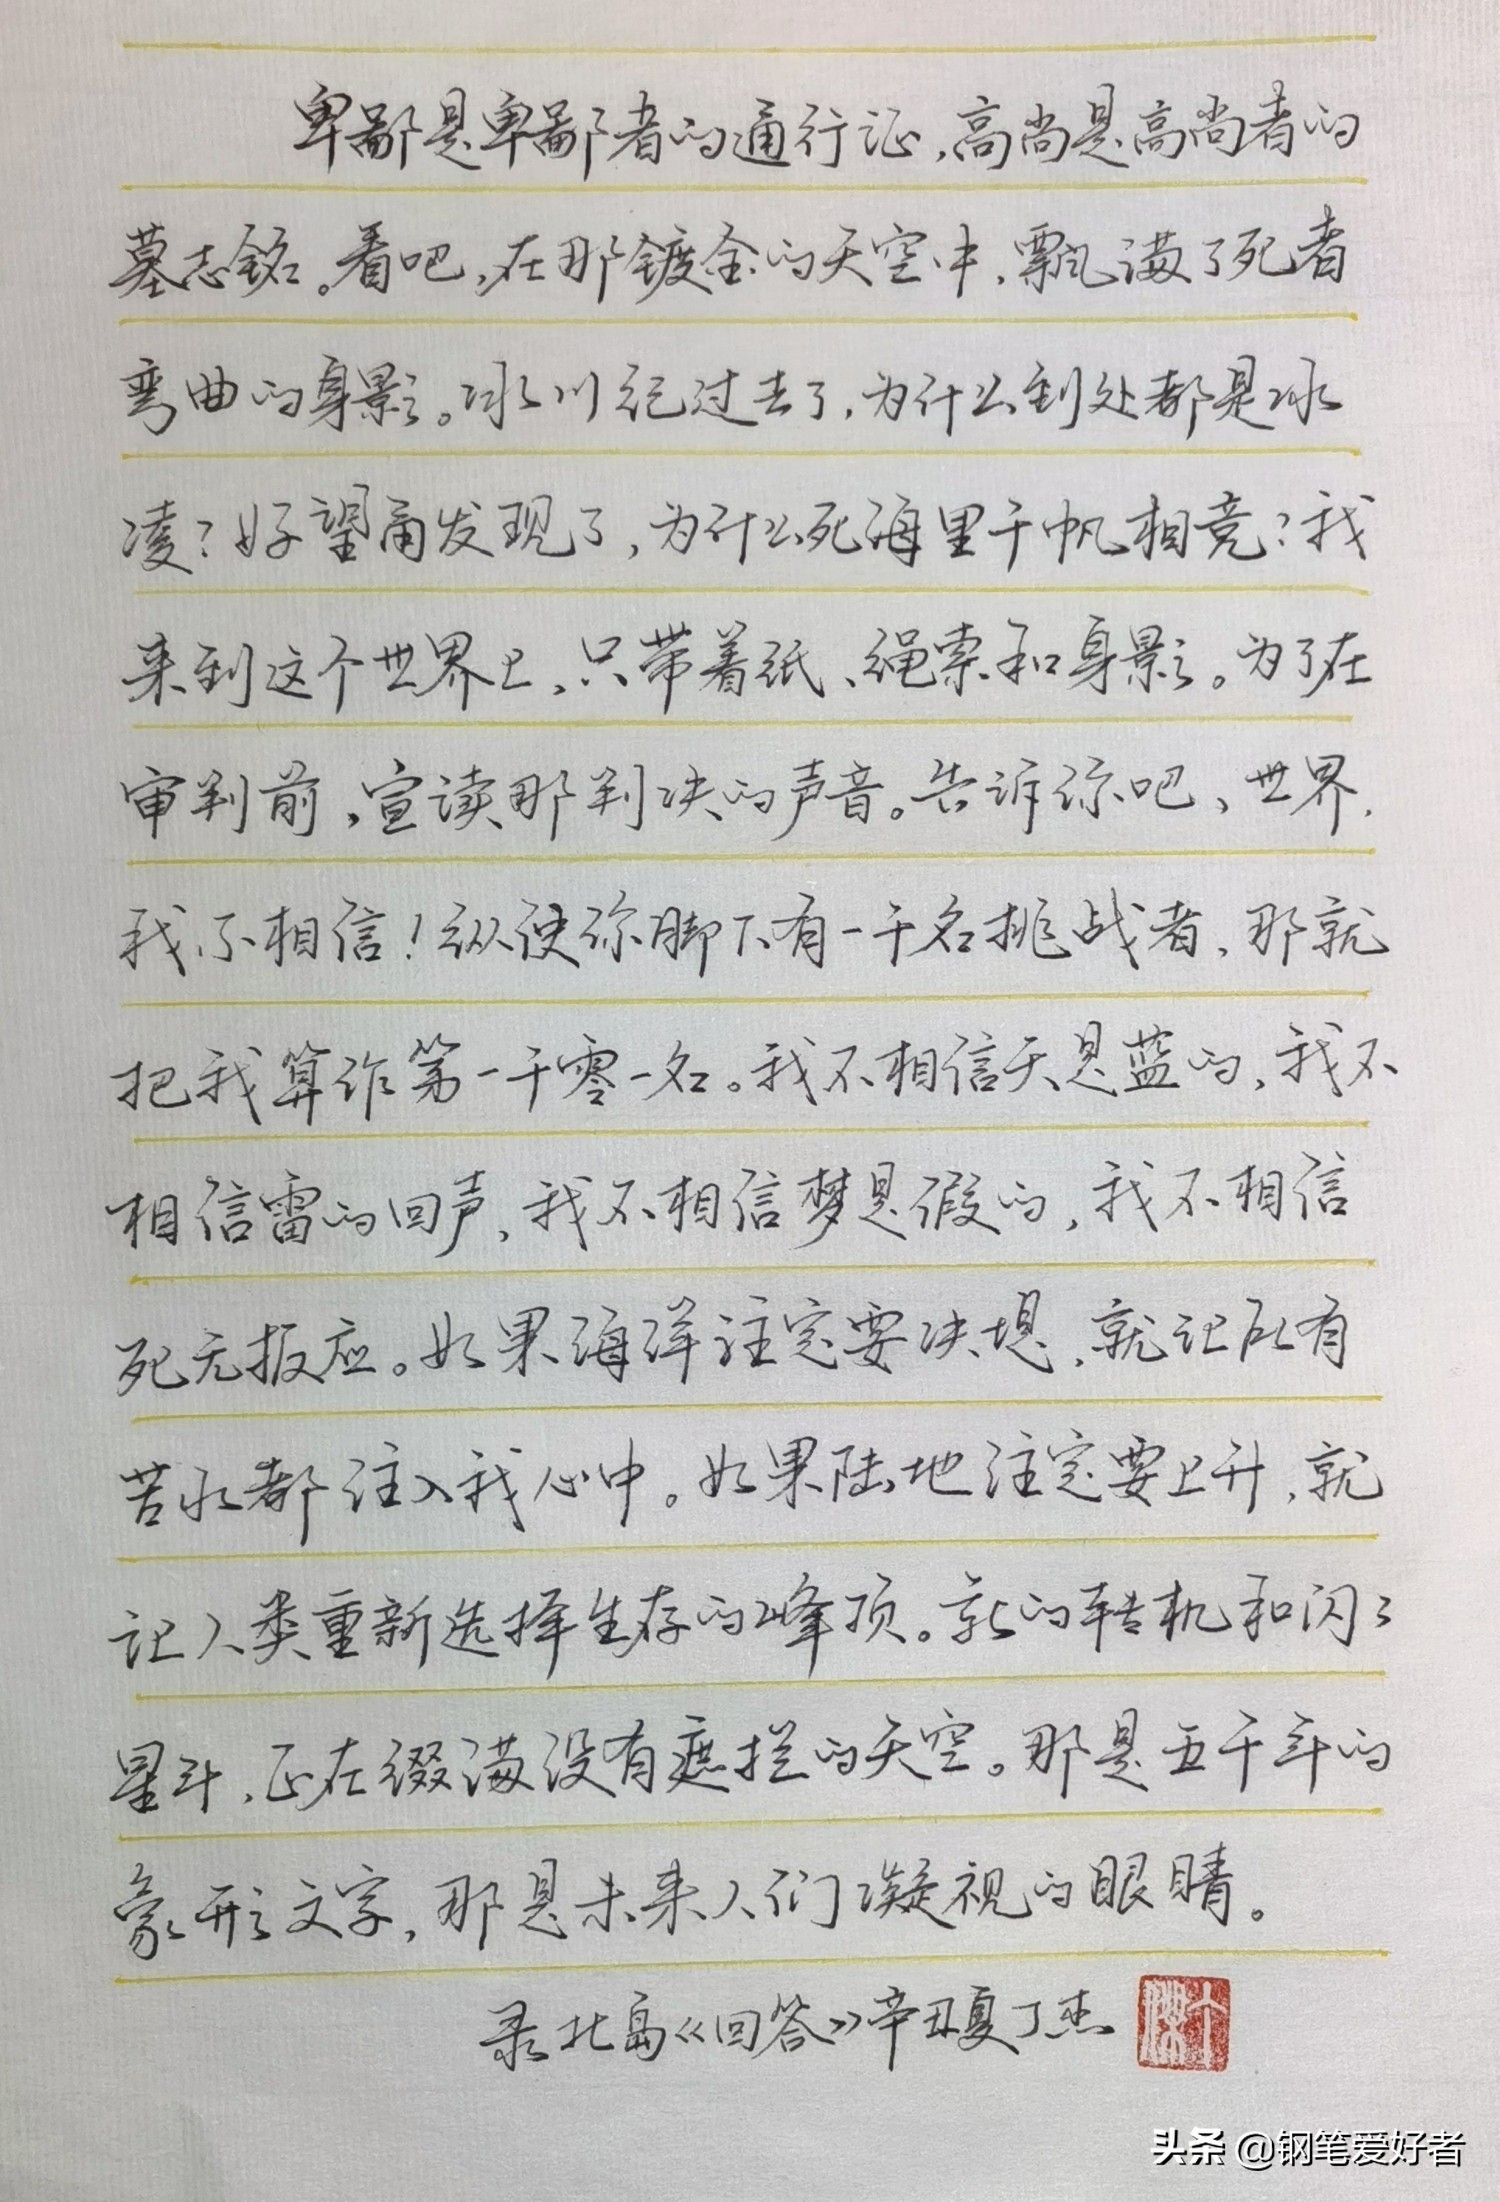 卑鄙是卑鄙者的通行证,高尚是高尚者的
墓志铭。看吧,在那镀金的天空中,飘满了死者
弯曲的身影。冰川纪过去了,为什么到处都是冰
凌?好望角发现了,为什么死海里千帆相竞?我
来到这个世界上,只带着纸、绳索和身影。为了在
审判前,宣读那判决的声音。告诉你吧,世界,
我不相信!纵使你脚下有一千名挑战者,那就
把我算作第一千零一名。我不相信天是蓝的,我不
相信雷的回声,我不相信梦是假的,我不相信
死无报应。如果海洋注定要决堤,就让所有
苦水都注入我心中。如果陆地注定要上升,就
让人类重新选择生存的峰顶。新的转机和闪闪
星斗,正在缀满没有遮拦的天空。那是五千年的
象形文字,那是未来人们凝视的眼睛。
录北岛《回答》辛丑夏丁杰
头条 @钢笔爱好者